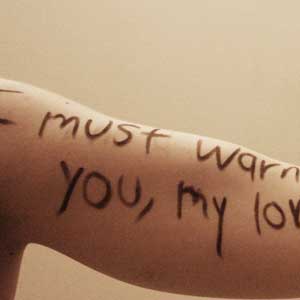 I must warn
YOU, my lov